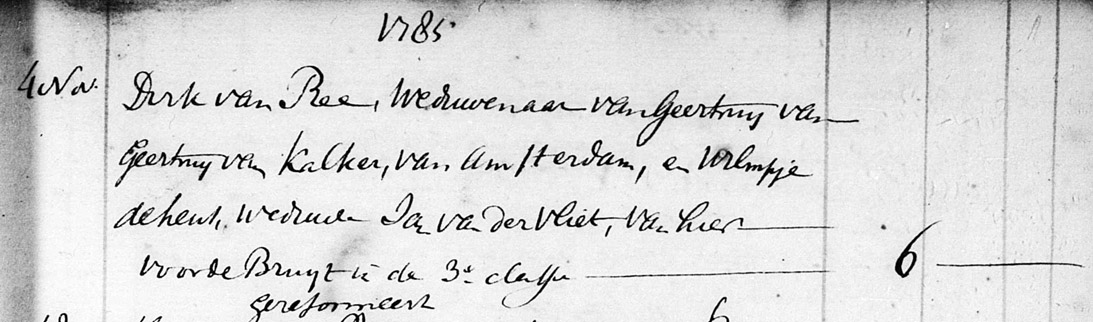 1785
4 Nov. Dirk van Ree, Weduwenaar van Geertruy van
Geertruy van Kalker, van Amsterdam, en Wilmpje
de heus, Weduwe Jan van der Vliet, van hier
6
voor de Bruyt in de 3e classe
gereformeert